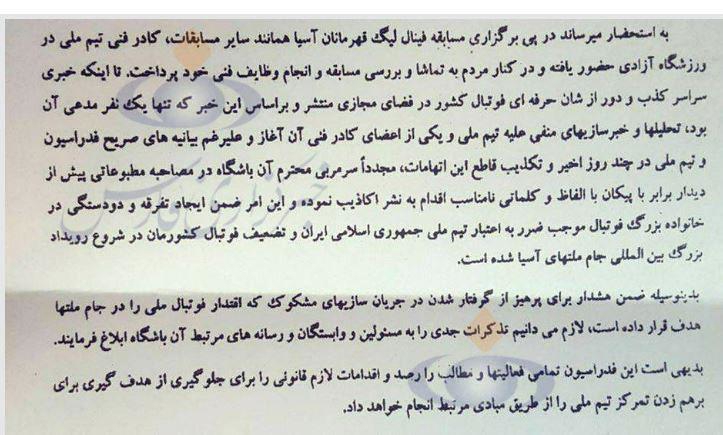 به استحضار میرساند در پی برگزاری مسابقه فینال لیگ قهرمانان آسیا همانند سایر مسابقات، کادر فنی تیم ملی در
ورزشگاه آزادی حضور یافته و در کنار مردم به تماشا و بررسی مسابقه و انجام وظایف فنی خود پرداخت. تا اینکه خبری
سراسر کذب و دور از شان حرفه ای فوتبال کشور در فضای مجازی منتشر و براساس این خبر که تنها یک نفر مدعی آن
بود، تحلیلها و خبرسازیهای منفی علیه تیم ملی و یکی از اعضای کادر فنی آن آغاز و علیرغم بیانیه های صریح فدراسیون
و تیم ملی در چند روز اخیر و تکذیب قاطع این اتهامات، مجدداً سرمربی محترم آن باشگاه در مصاحبه مطبوعاتی پیش از
دیدار برابر با پیکان با الفاظ و کلماتی نامناسب اقدام به نشر اکاذیب نموده و این امر ضمن ایجاد تفرقه و دودستگی در
خانواده بزرگ فوتبال موجب ضرر به اعتبار تیم ملی جمهوری اسلامی ایران و تضعیف فوتبال کشورمان در شروع رویداد
بزرگ بین المللی جام ملتهای آسیا شده است.
بدینوسیله ضمن هشدار برای پرهیز از گرفتار شدن در جریان سازیهای مشکوک که اقتدار فوتبال ملی را در جام ملتها
هدف قرار داده است، لازم می دانیم تذکرات جدی را به مسئولین و وابستگان و رسانه های مرتبط آن باشگاه ابلاغ فرمایند.
بدیهی است این فدراسیون تمامی فعالیتها و مطالب را رصد و اقدامات لازم قانونی را برای جلوگیری از هدف گیری برای
برهم زدن تمرکز تیم ملی را از طریق مبادی مرتبط انجام خواهد داد.
خبرگزاری فارس